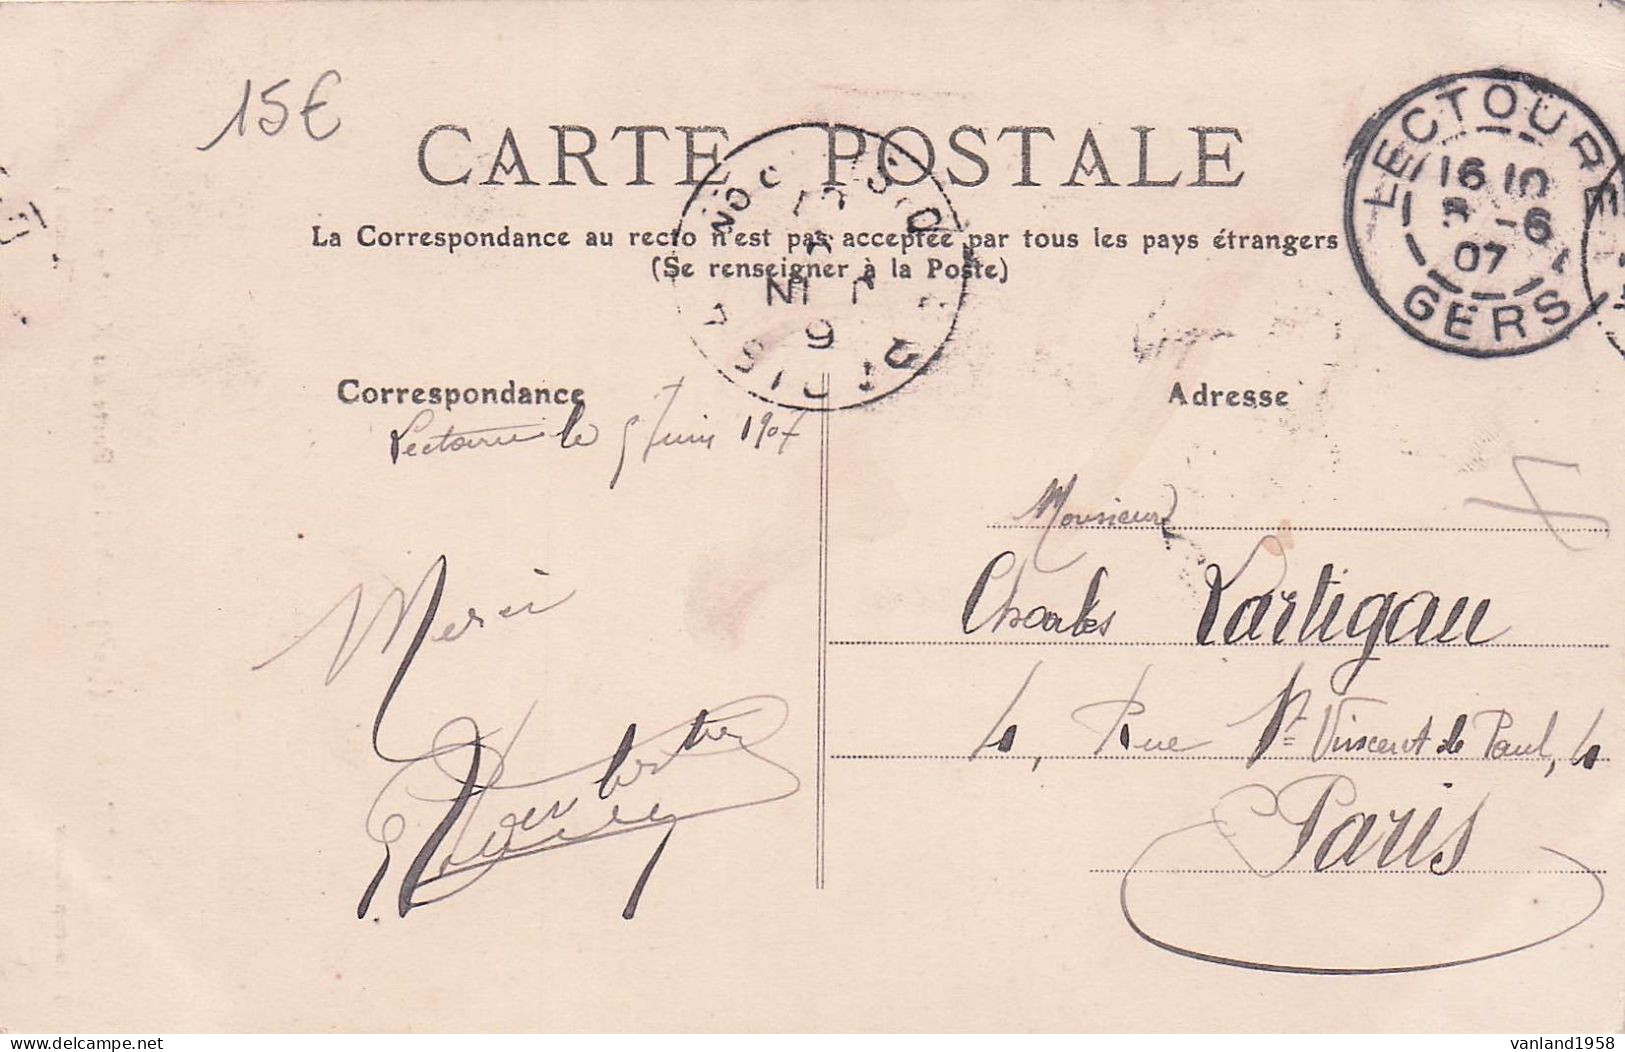 15€
CARTE POSTALE
La Correspondance au recto n'est pas acceptée par tous les pays étrangers
(Se renseigner à la Poste)
LECTOURE
16 10
-6
07
GERS
JUIN
9
Correspondance
Adresse
Lectoure le 5 Juin 1907
Monsieur
Charles Lartigau
4, Rue St Vincent de Paul, 4
Paris
Merci
www.delcampe.net
vanland1958